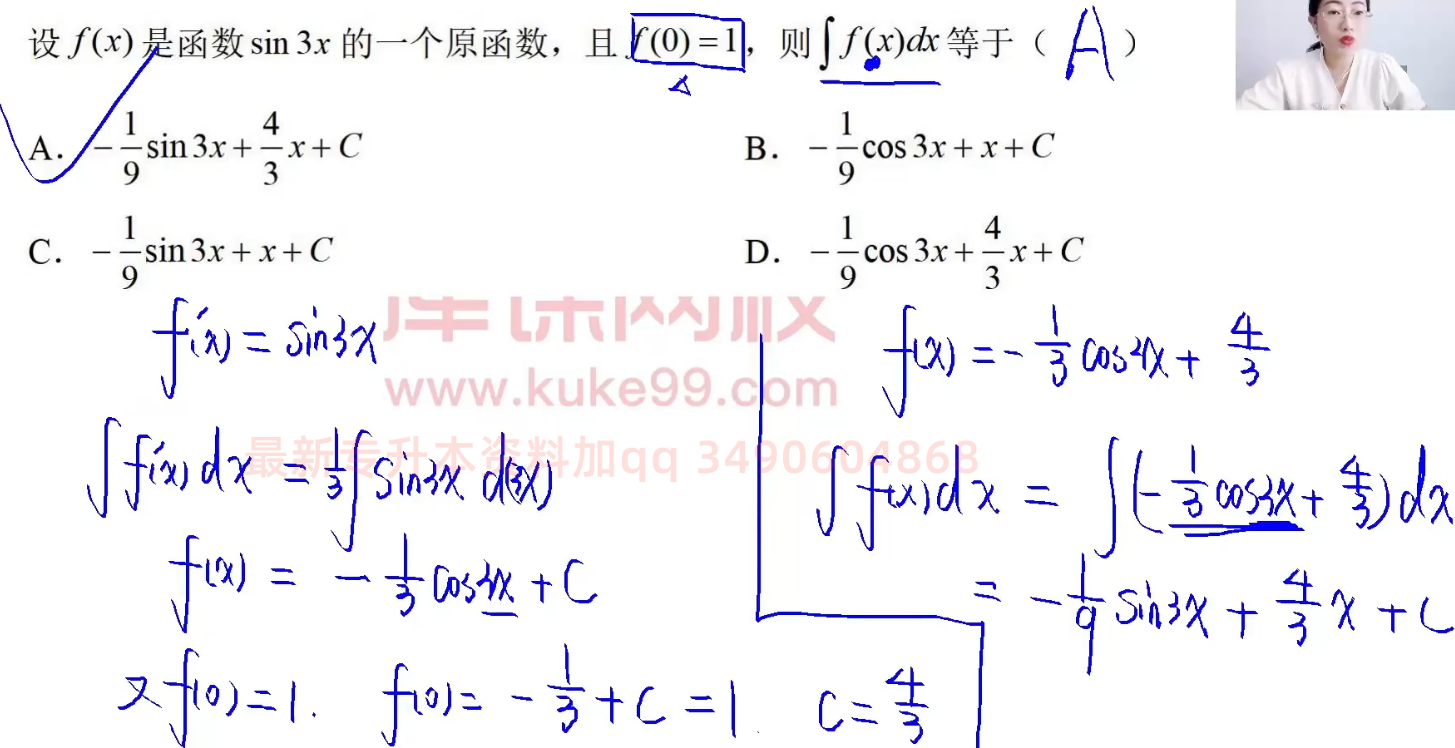 设 f(x) 是函数 sin 3x 的一个原函数，且 f(0) = 1，则 ∫ f(x)dx 等于（ A ）
A． −1/9 sin 3x + 4/3 x + C
B． −1/9 cos 3x + x + C
C． −1/9 sin 3x + x + C
D． −1/9 cos 3x + 4/3 x + C
库课网校
www.kuke99.com
最新专升本资料加qq 3490604868
f′(x) = sin3x
∫ f′(x) dx = 1/3 ∫ sin3x d(3x)
f(x) = − 1/3 cos3x + C
又 f(0) = 1. f(0) = − 1/3 + C = 1. C = 4/3
f(x) = − 1/3 cos3x + 4/3
∫ f(x) dx = ∫ (− 1/3 cos3x + 4/3) dx
= − 1/9 sin3x + 4/3 x + C